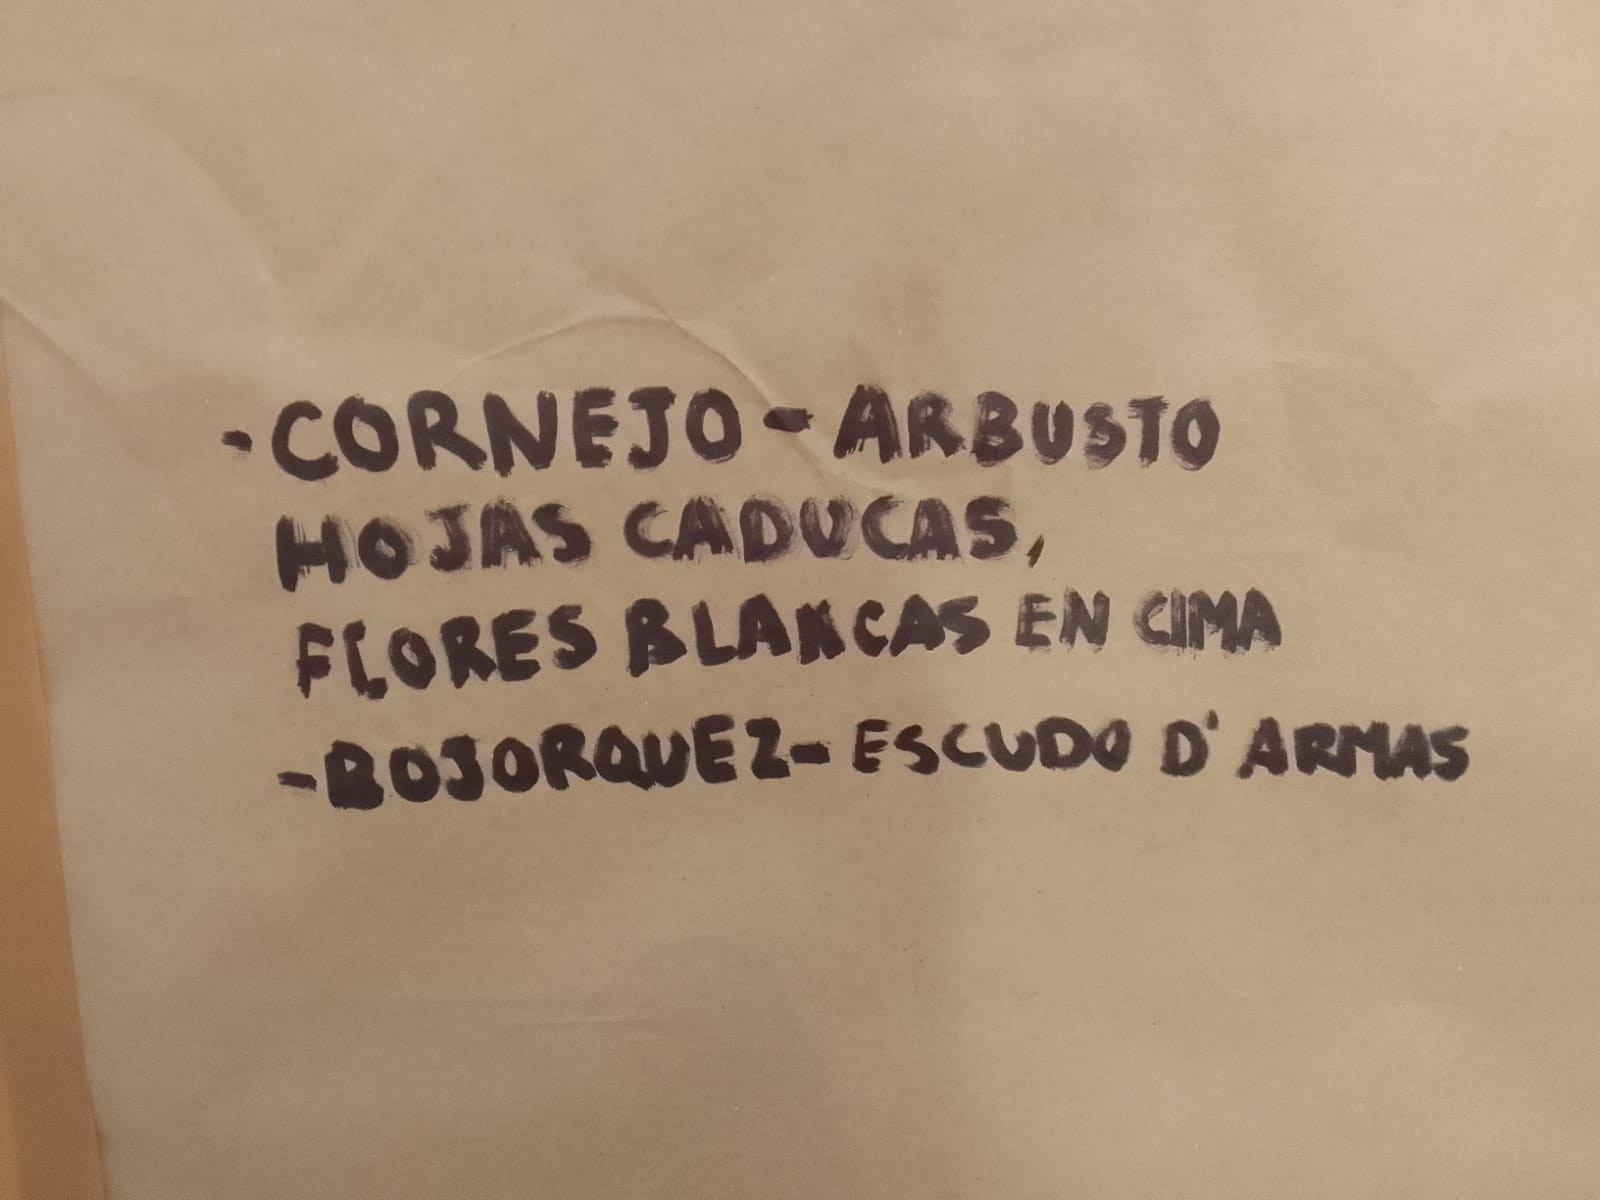 ·CORNEJO - ARBUSTO
HOJAS CADUCAS,
FLORES BLANCAS EN CIMA
-BOJORQUEZ- ESCUDO D' ARMAS